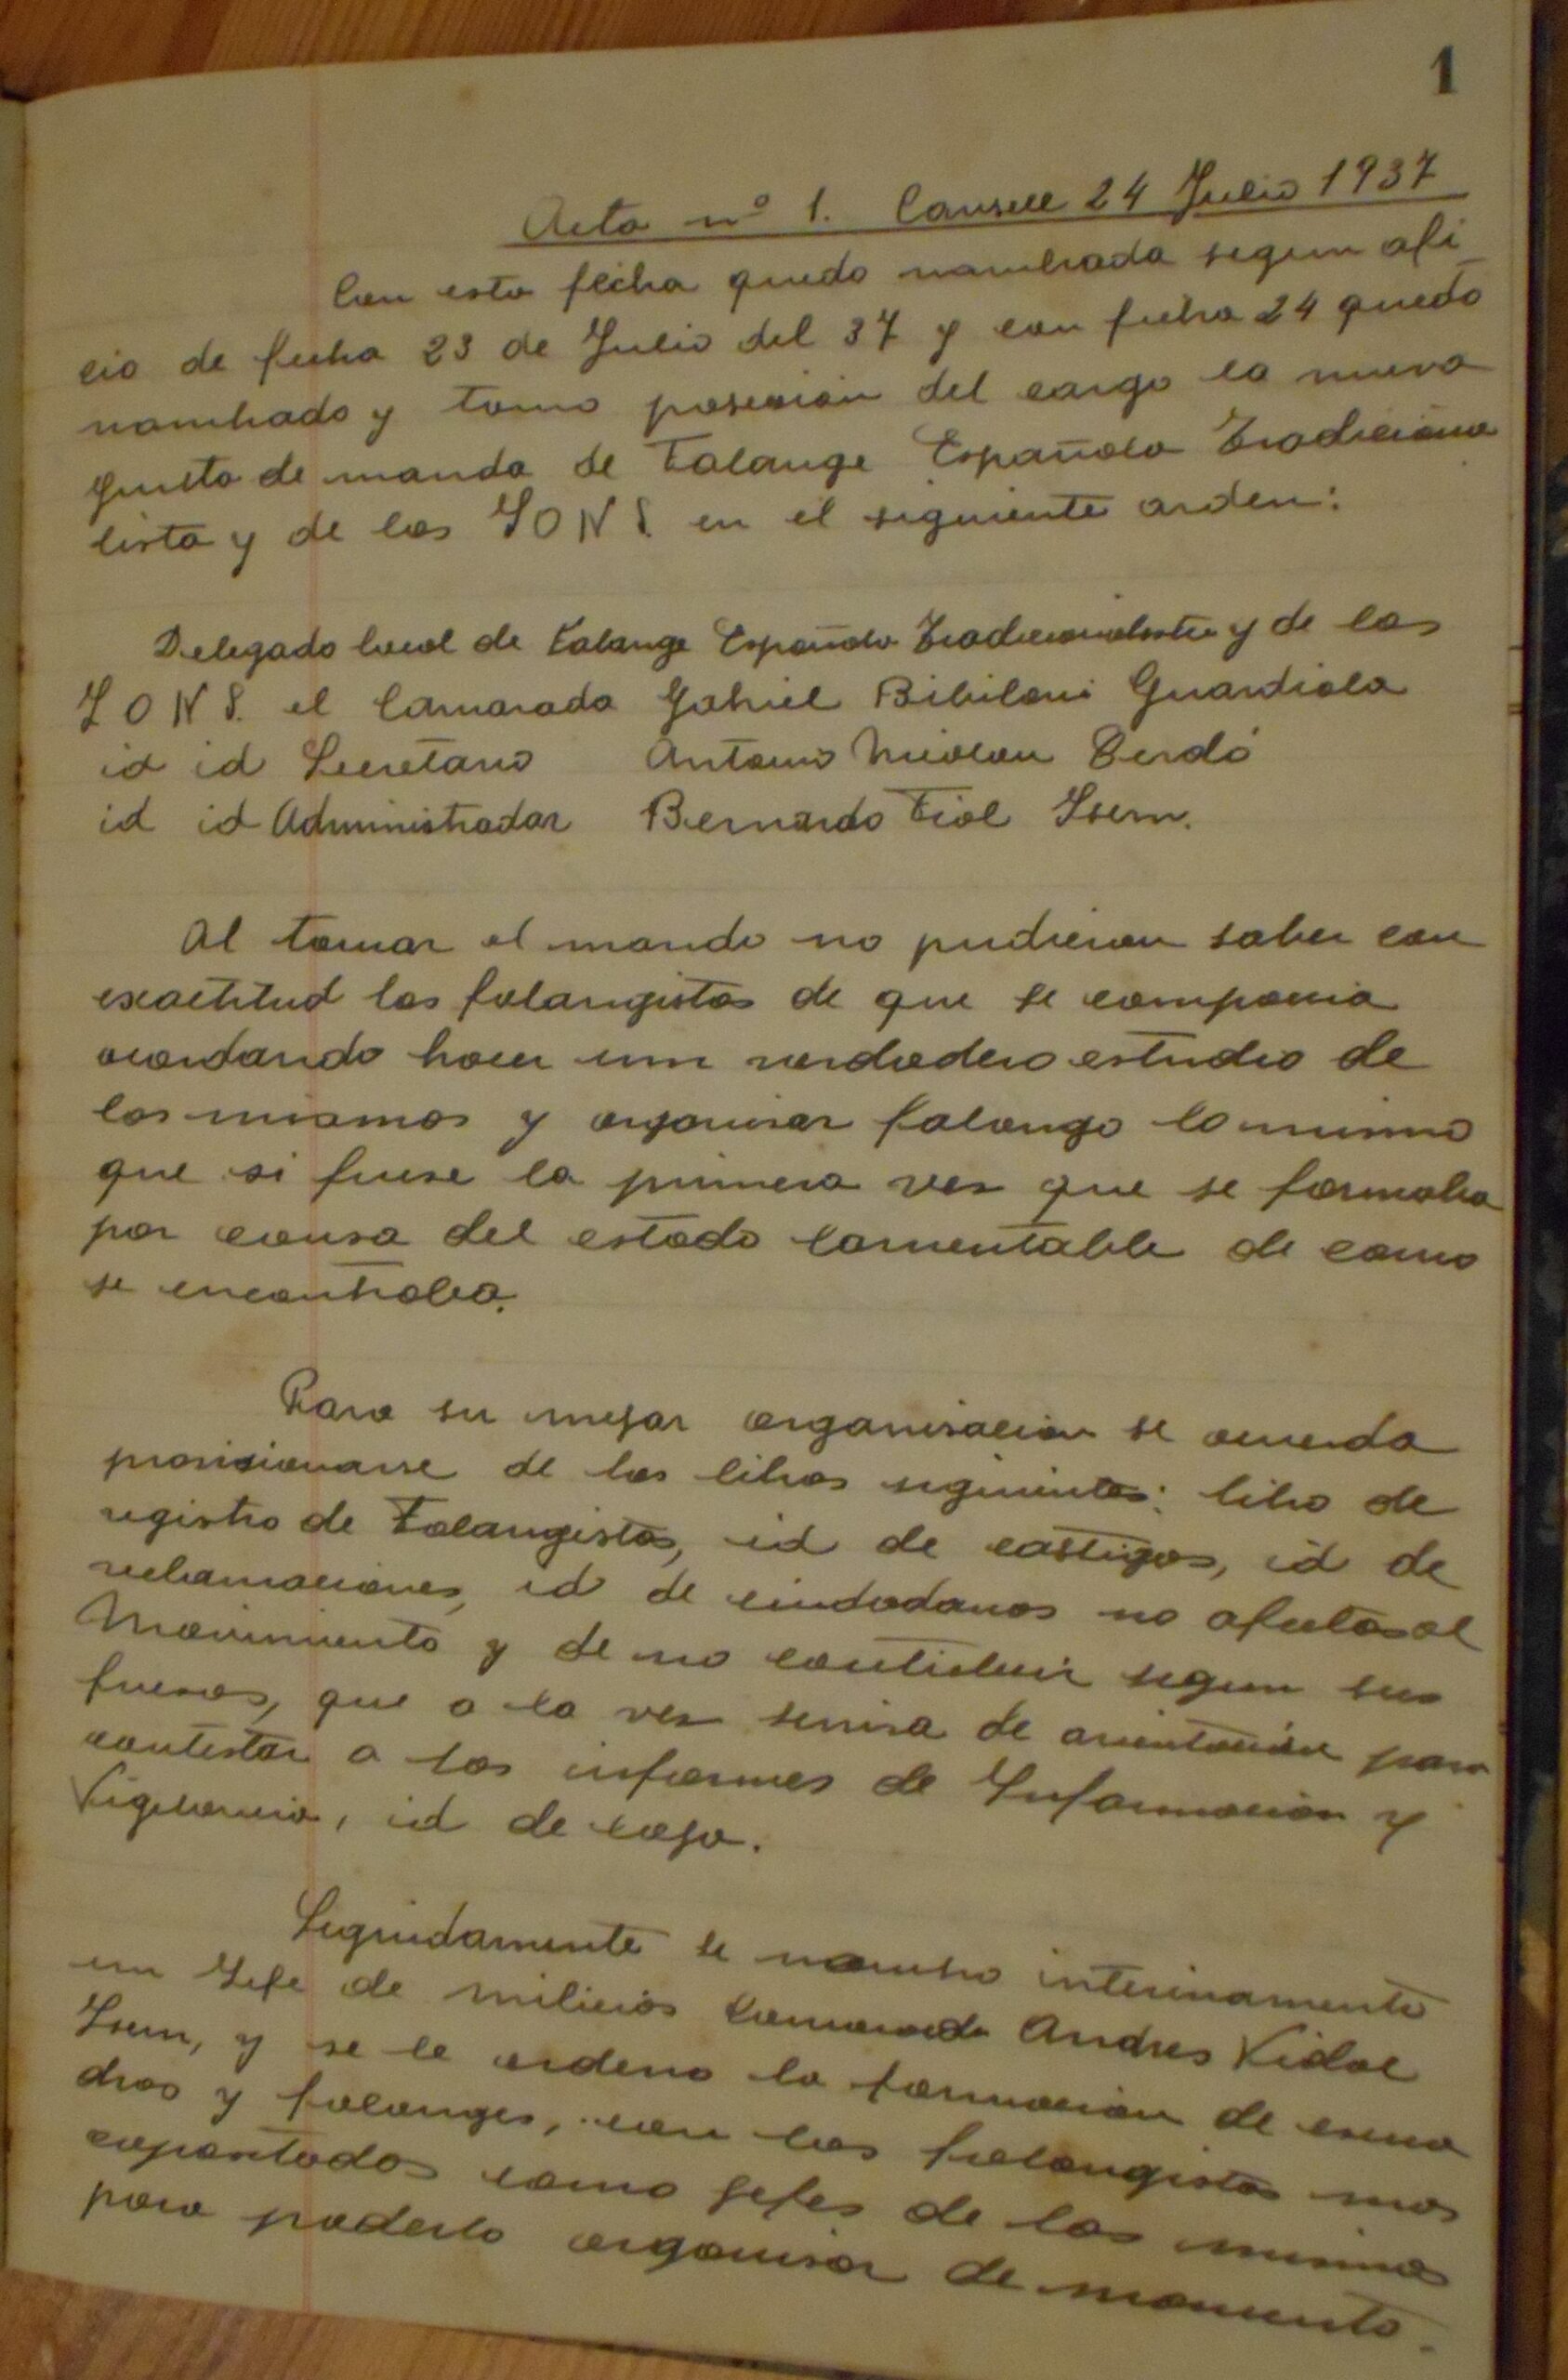 1
Acta nº 1. Consell 24 Julio 1937
Con esta fecha quedo nombrada segun ofi
cio de fecha 23 de Julio del 37 y con fecha 24 quedo
nombrado y tomo posesión del cargo la nueva
Junta de mando de Falange Española Tradiciona
lista y de las JONS. en el siguiente orden:
Delegado local de Falange Española Tradicionalista y de las
JONS. el Camarada Gabriel Bibiloni Guardiola
id id Secretario Antonio Nicolau Cerdó
id id Administrador Bernardo Fiol Isern.
Al tomar el mando no pudieron saber con
exactitud los falangistas de que se componia
acordando hacer un verdadero estudio de
los mismos y organisar falange lo mismo
que si fuese la primera ves que se formaba
por causa del estado lamentable de como
se encontraba.
Para su mejor organisacion se acuerda
provisionarse de los libros siguientes: libro de
registro de Falangistas, id de castigos, id de
reclamaciones, id de ciudadanos no afectos al
Movimiento y de no contribuir segun sus
fuersas, que a la ves servira de orientación para
contestar a los informes de Informacion y
Vigilancia, id de caja.
Seguidamente se nombro interinamente
un Jefe de milicias Camarada Andres Vidal
Isern, y se le ordeno la formación de escua
dras y falanges, con los falangistas mas
capasitados como jefes de las mismas
para poderlo organisar de momento.